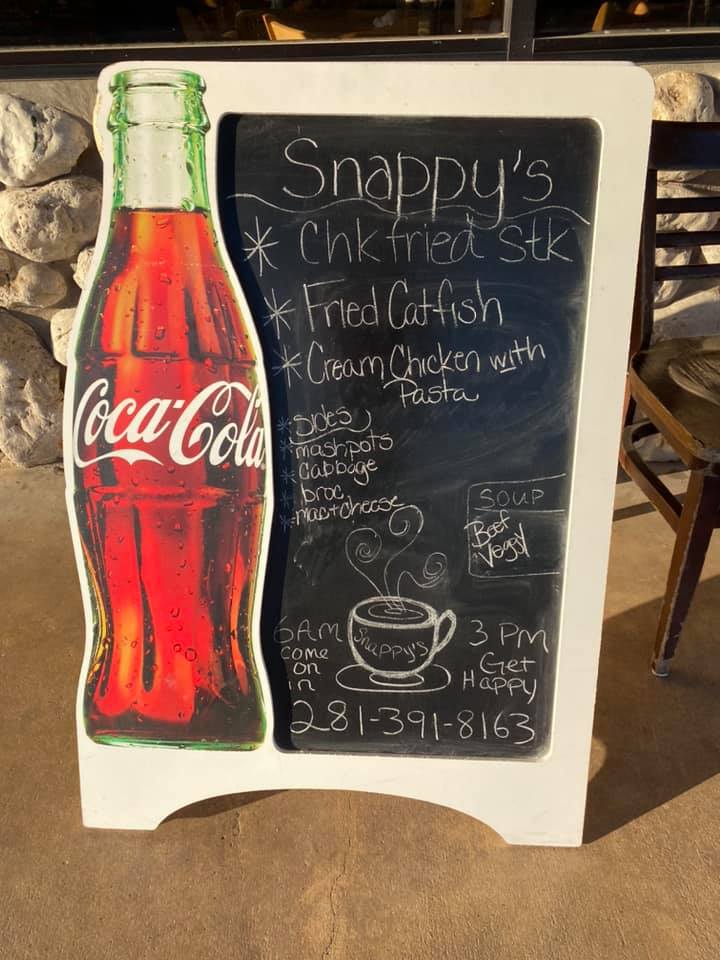 Coca-Cola
Snappy's
* Chk fried stk
* Fried Catfish
* Cream Chicken with
Pasta
* Sides
* mashpots
* Cabbage
* broc
* mac + cheese
SOUP
Beef
Veggy
6AM
Come
on
in
Snappy's
3 PM
Get
Happy
281-391-8163